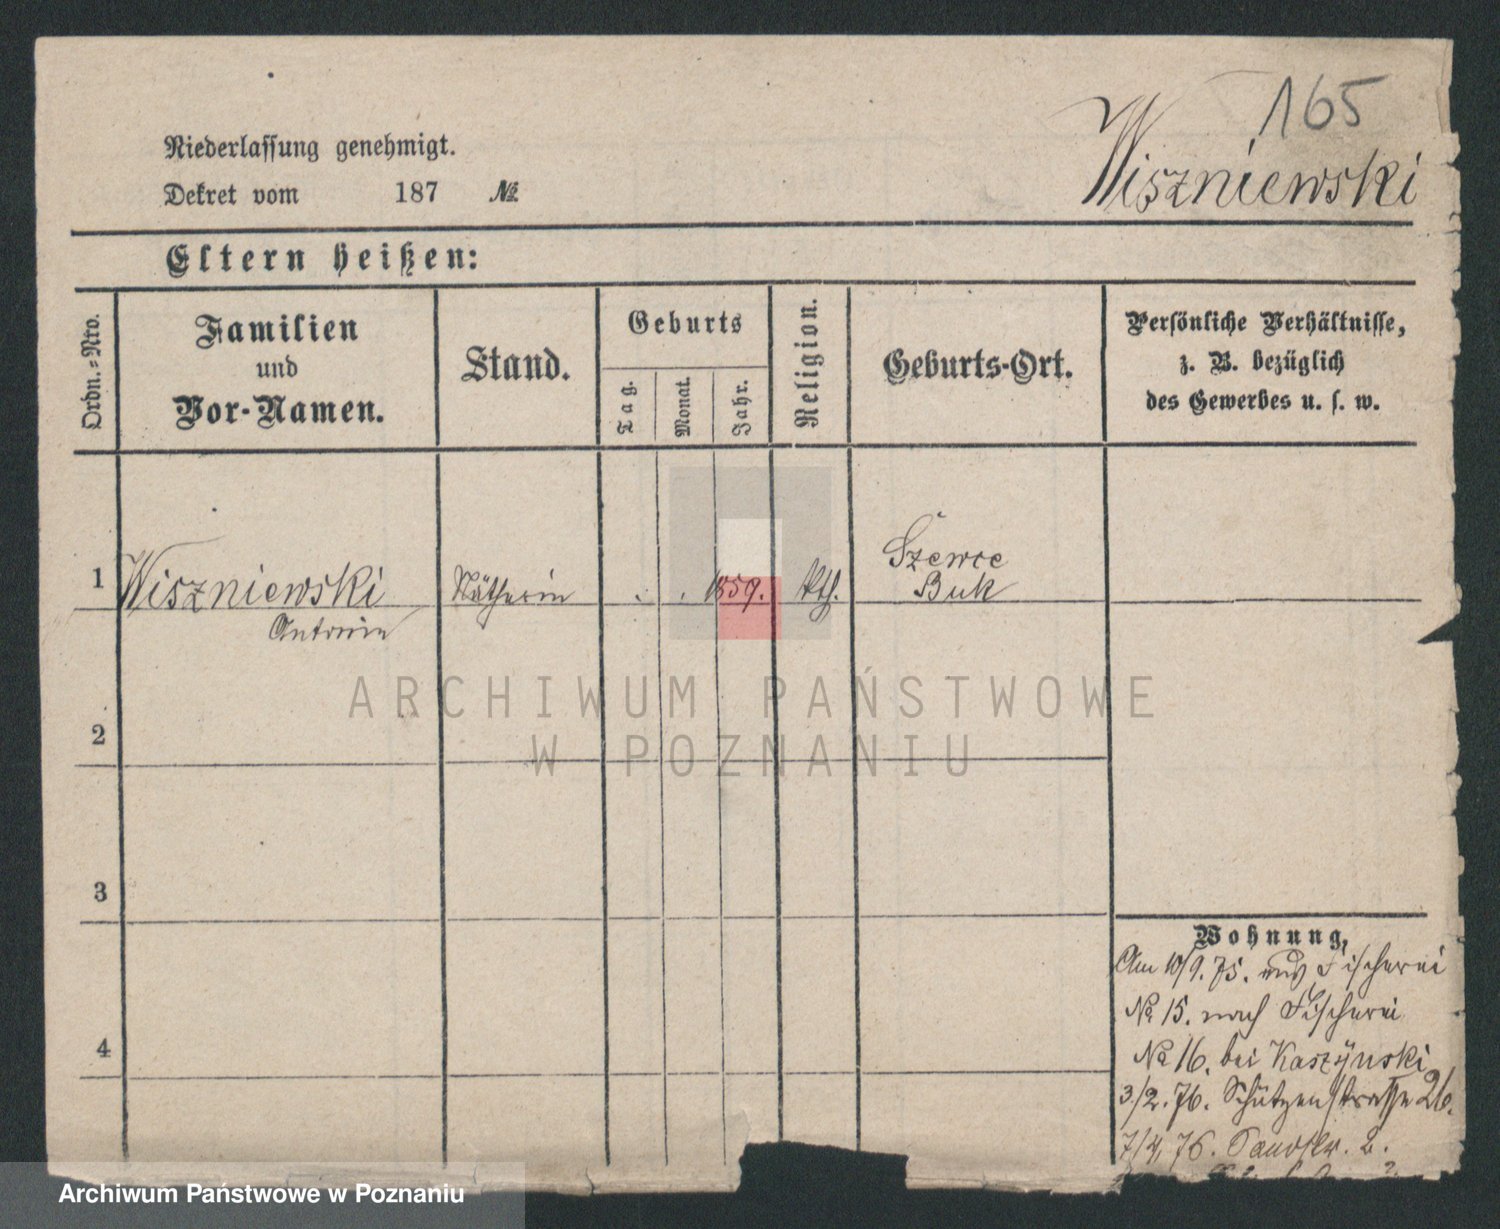 165
Wiszniewski
Niederlassung genehmigt.
Dekret vom 187 №
Eltern heißen:
Ordn.=Nro.
Familien
und
Vor-Namen.
Stand.
Geburts
Tag.
Monat.
Jahr.
Religion.
Geburts-Ort.
Persönliche Verhältnisse,
z. B. bezüglich
des Gewerbes u. s. w.
1
Wiszniewski
Antonie
Nätherin
1859.
kth.
Szewce
Buk
2
3
4
Wohnung,
Am 10/9. 75. Fischerei
No 15. nach Fischerei
No 16. bei Kaszynski
3/2. 76. Schützenstraße 26.
7/4. 76. Sandstr. 2.
ARCHIWUM PAŃSTWOWE
W POZNANIU
Archiwum Państwowe w Poznaniu